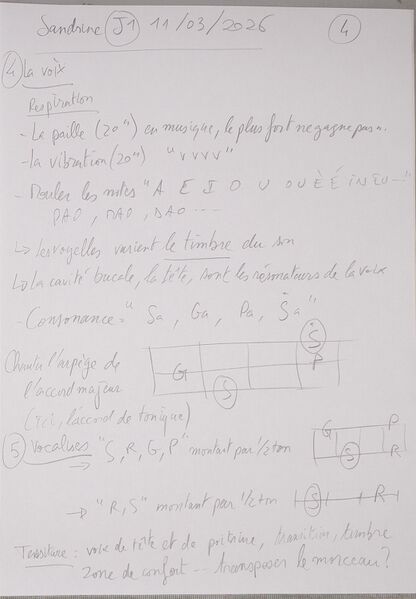 Sandrine J1 11/03/2026 4
4 La voix
Respiration
- La paille (20") en musique, le plus fort ne gagne pas...
- la vibration (20") "VVVV"
- Mouler les notes "A E I O U OU È É IN EU ...
PAO, MAO, BAO ...
↳ les voyelles varient le timbre du son
↳ la cavité bucale, la tête, sont les résonateurs de la voix
- Consonance = "Sa, Ga, Pa, Ṡa"
Ṡ
Chanter l'arpège de
G S P
l'accord majeur
(ici, l'accord de tonique)
5 Vocalises "S, R, G, P" montant par 1/2 ton
G S R P
→ "R, S" montant par 1/2 ton
S R
Tessiture : voix de tête et de poitrine, transition, timbre
zone de confort ... transposer le morceau ?